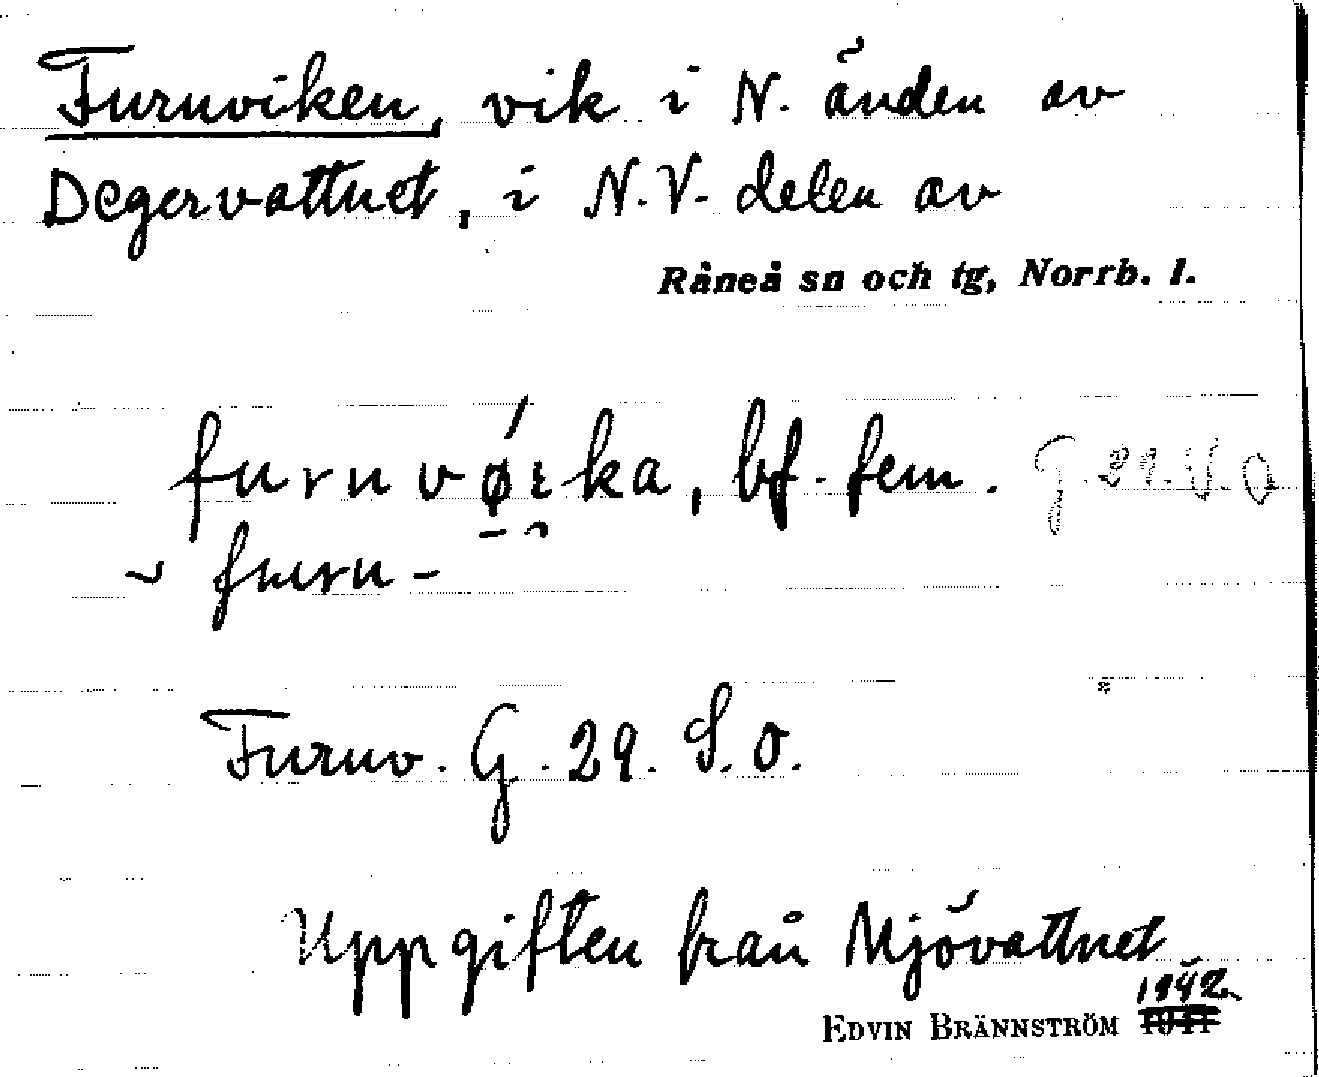 Furuviken, vik i N. änden av
Degervattnet, i N.V. delen av
Råneå sn och tg, Norrb. l.
furuvǿɪka, bf. fem. G 29. S. O
~ furu-
Furuv. G. 29. S.O.
Uppgiften från Mjövattnet
1942
EDVIN BRÄNNSTRÖM 1941